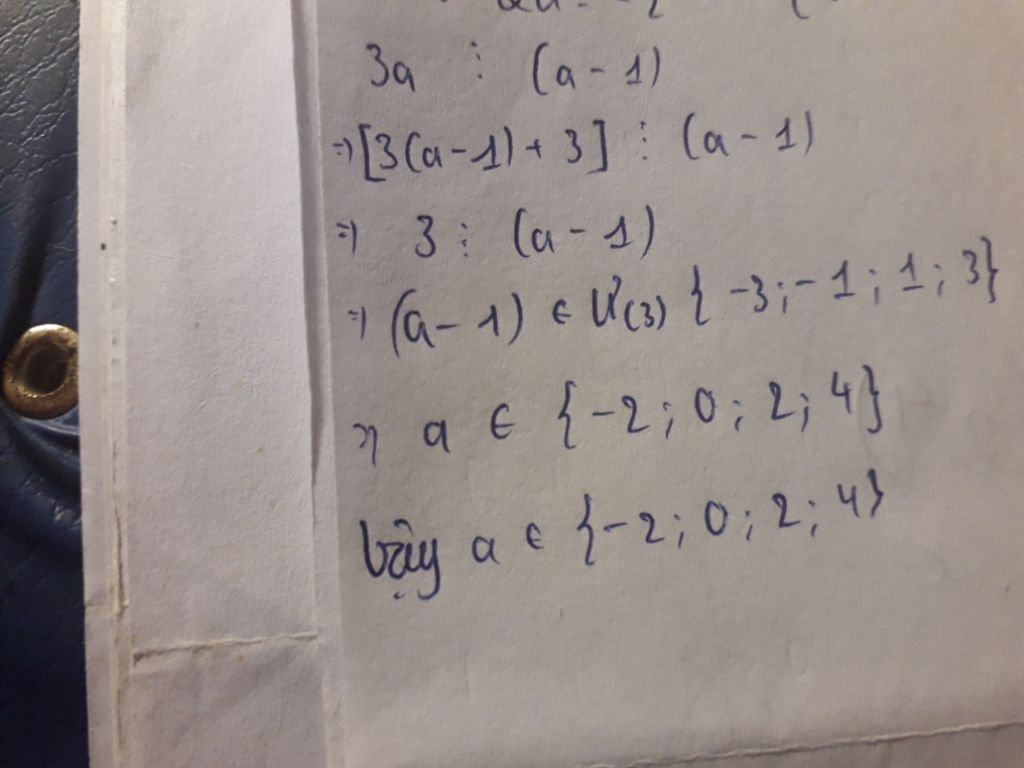 3a ⋮ (a - 1)
⇒ [3(a - 1) + 3] ⋮ (a - 1)
⇒ 3 ⋮ (a - 1)
⇒ (a - 1) ∈ Ư(3) { -3 ; - 1 ; 1 ; 3}
⇒ a ∈ {-2 ; 0 ; 2 ; 4}
vậy a ∈ {-2 ; 0 ; 2 ; 4}